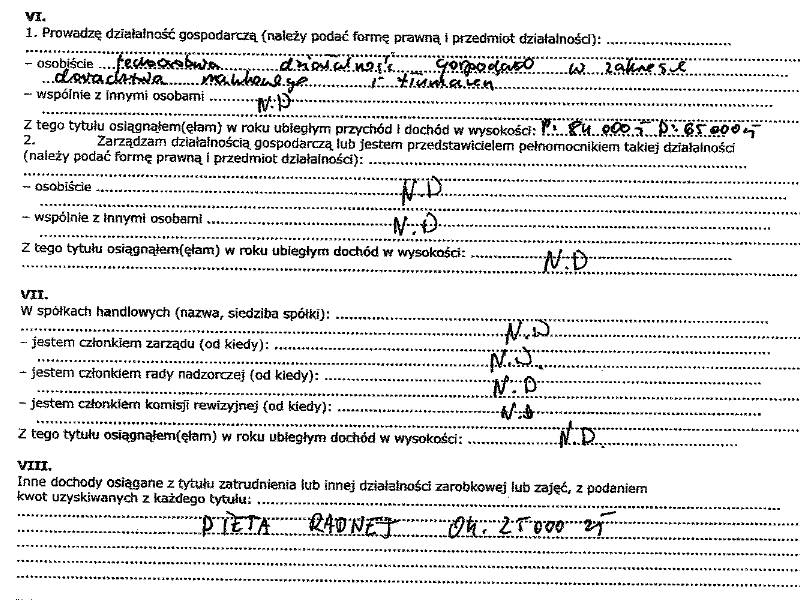 VI.
1. Prowadzę działalność gospodarczą (należy podać formę prawną i przedmiot działalności):
– osobiście jednoosobowa działalność gospodar. w zakresie
doradztwa naukowego i tłumaczeń
– wspólnie z innymi osobami
N.D
Z tego tytułu osiągnąłem(ęłam) w roku ubiegłym przychód i dochód w wysokości: P: 84 000 zł D: 65 000 zł
2. Zarządzam działalnością gospodarczą lub jestem przedstawicielem pełnomocnikiem takiej działalności
(należy podać formę prawną i przedmiot działalności):
– osobiście N.D
– wspólnie z innymi osobami N.D
Z tego tytułu osiągnąłem(ęłam) w roku ubiegłym dochód w wysokości: N.D
VII.
W spółkach handlowych (nazwa, siedziba spółki):
N.D
– jestem członkiem zarządu (od kiedy):
N.D.
– jestem członkiem rady nadzorczej (od kiedy):
N.D
– jestem członkiem komisji rewizyjnej (od kiedy):
N.D
Z tego tytułu osiągnąłem(ęłam) w roku ubiegłym dochód w wysokości: N.D.
VIII.
Inne dochody osiągane z tytułu zatrudnienia lub innej działalności zarobkowej lub zajęć, z podaniem
kwot uzyskiwanych z każdego tytułu:
DIETA RADNEJ OK. 25 000 zł